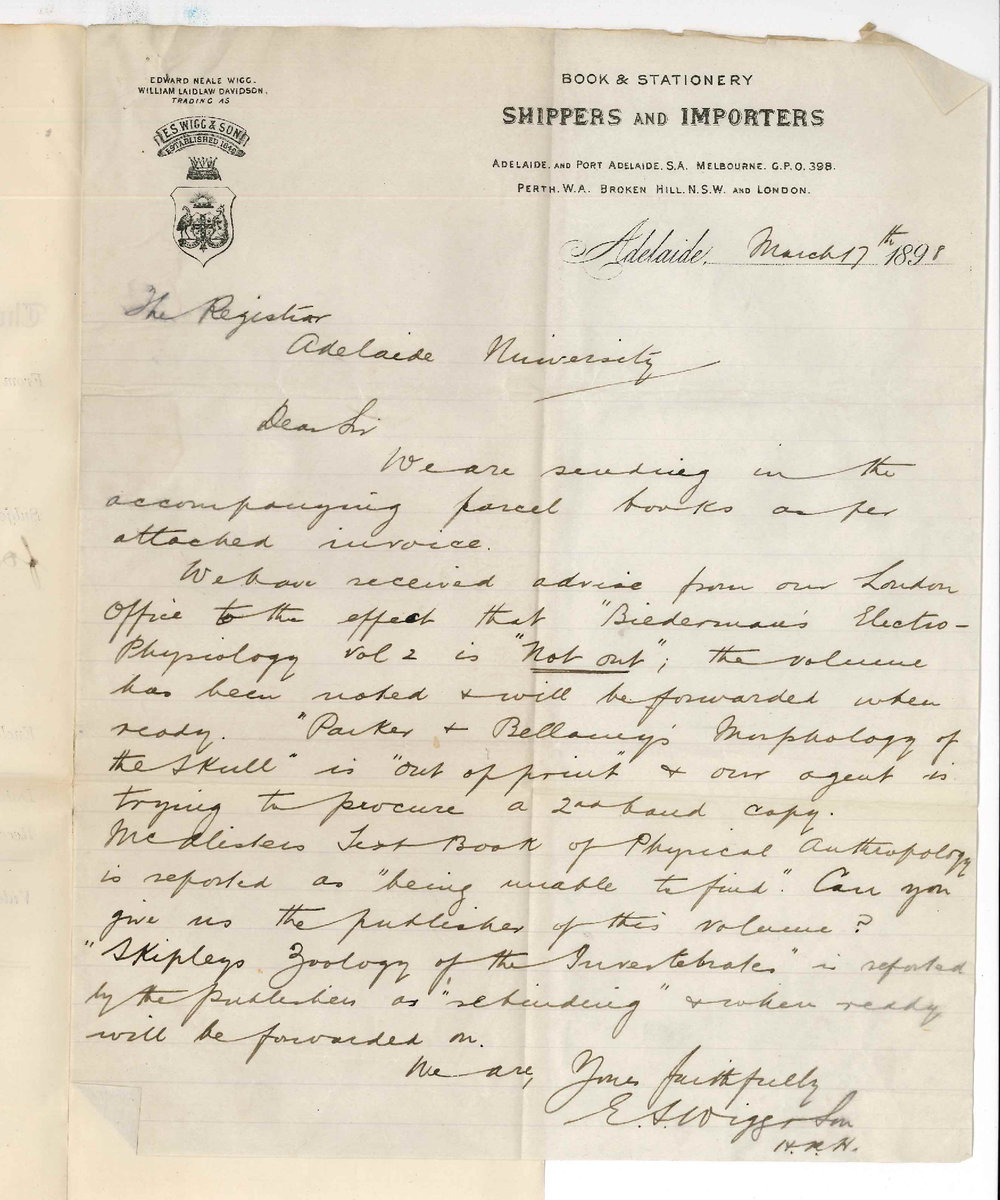 EDWARD NEALE WIGG.
WILLIAM LAIDLAW DAVIDSON,
TRADING AS
E.S. WIGG & SON
ESTABLISHED 1849
BOOK & STATIONERY
SHIPPERS AND IMPORTERS
ADELAIDE, AND PORT ADELAIDE, S.A. MELBOURNE. G.P.O. 398.
PERTH, W.A. BROKEN HILL, N.S.W. AND LONDON.
Adelaide, March 17th 1898
The Registrar
Adelaide University
Dear Sir
We are sending in the
accompanying parcel books as per
attached invoice.
We have received advise from our London
Office to the effect that "Biederman's Electro-
Physiology Vol 2 is "Not out"; the volume
has been noted & will be forwarded when
ready. "Parker & Bellamy's Morphology of
the Skull" is "out of print" & our agent is
trying to procure a 2nd hand copy.
McAlisters Text Book of Physical Anthropology
is reported as "being unable to find". Can you
give us the publisher of this volume?
"Skipleys Zoology of the Invertebrates" is reported
by the publishers as "rebinding" & when ready
will be forwarded on.
We are, Yours faithfully
E. S. Wigg & Son
H.R.H.